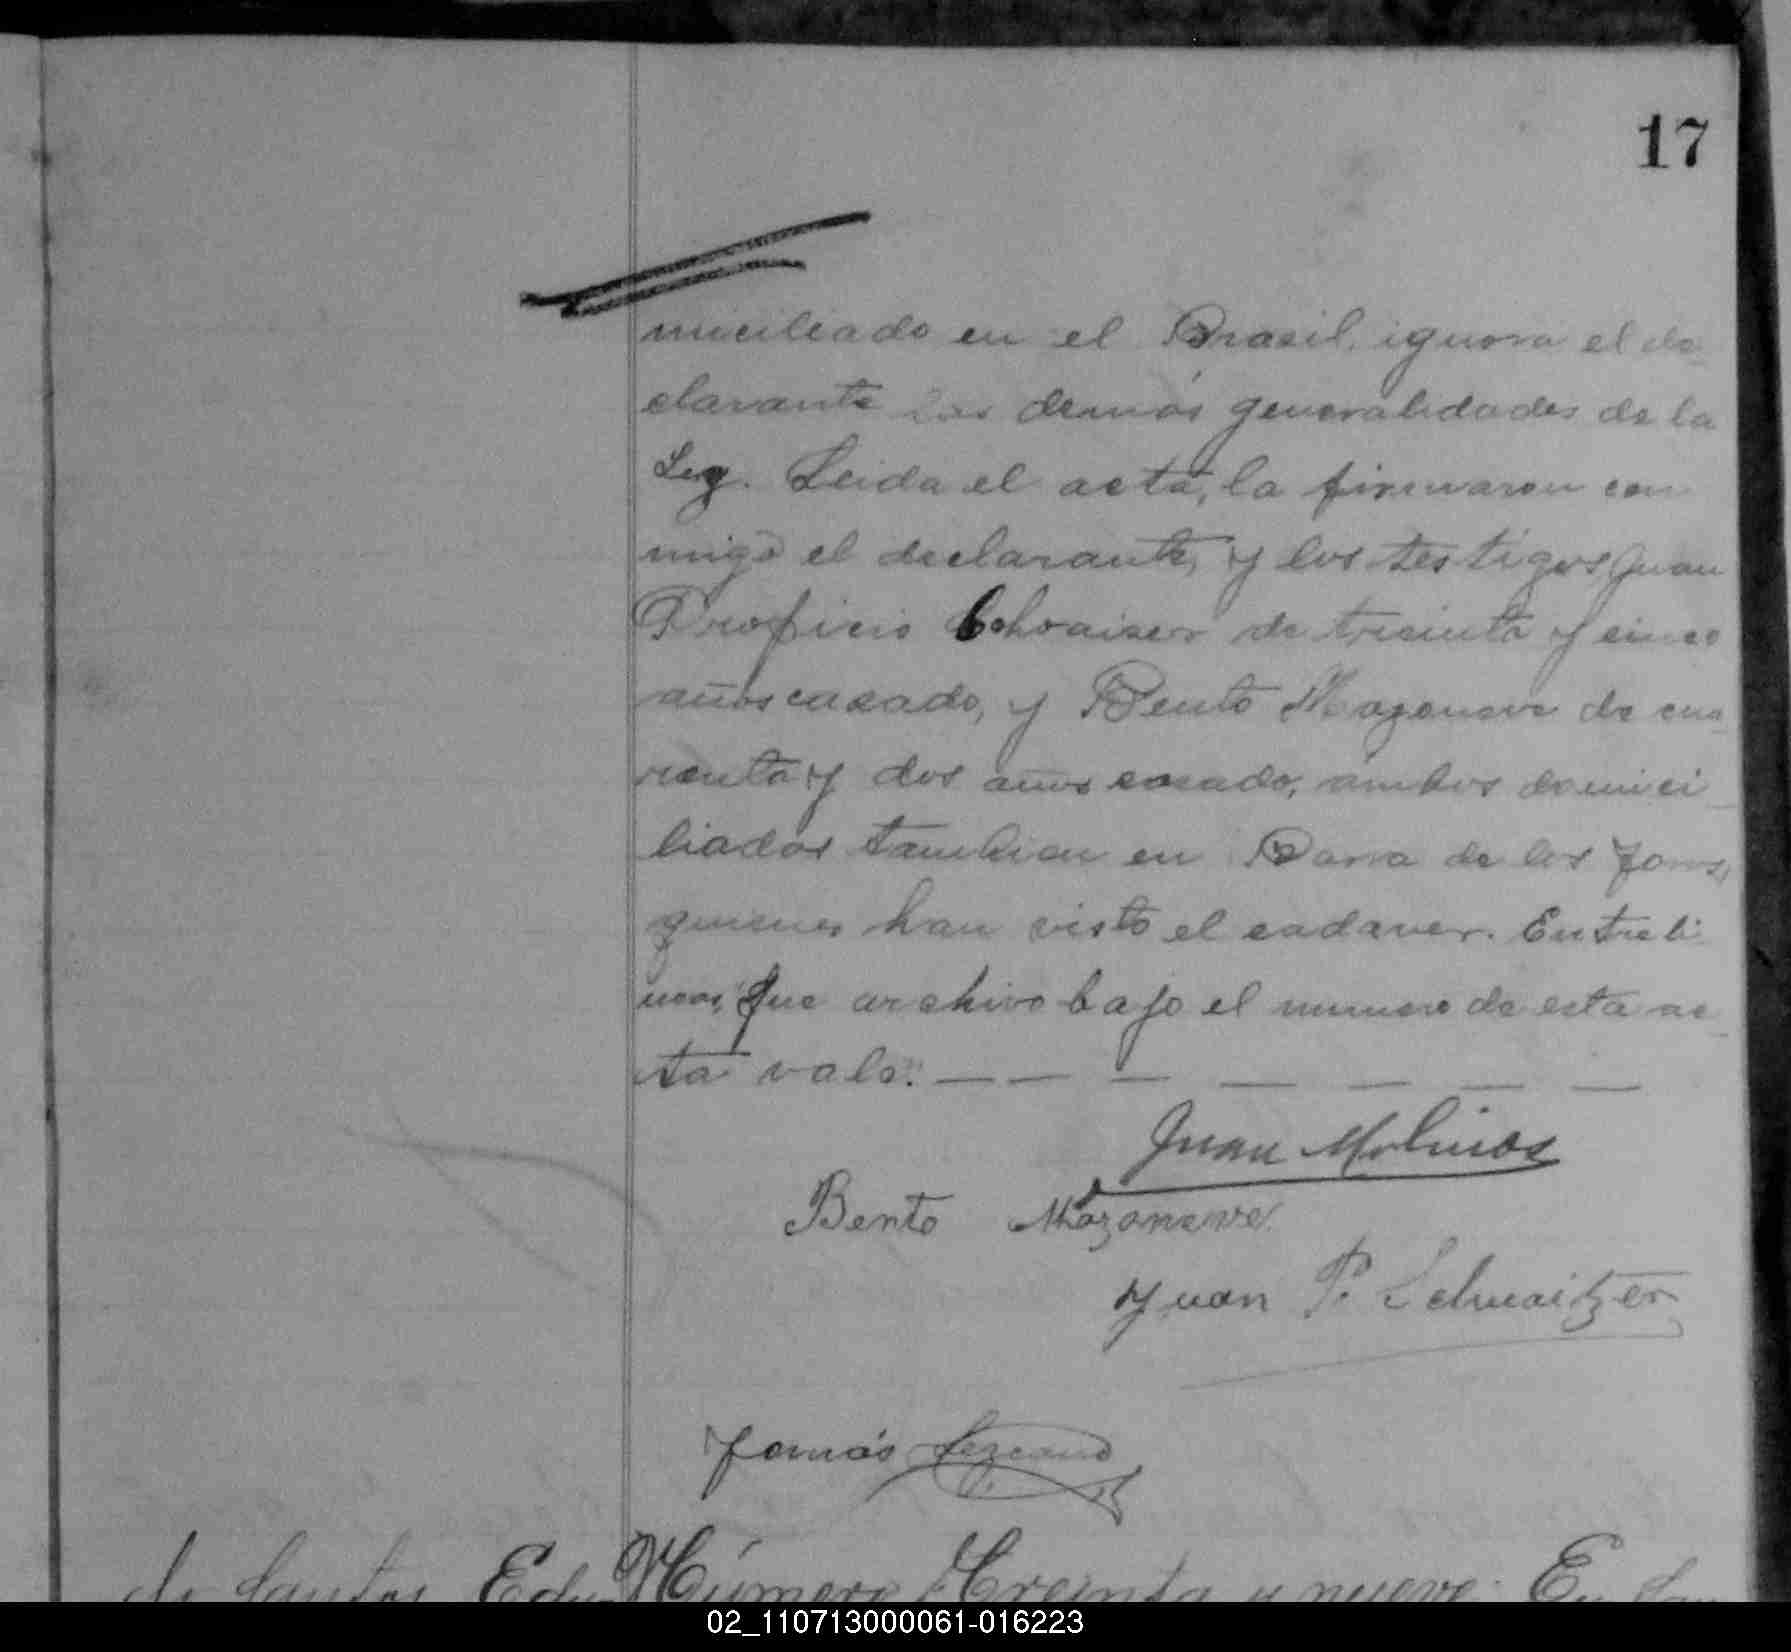 17
miciliado en el Brasil. ignora el de-
clarante las demás generalidades de la
Ley. Leida el acta, la firmaron con
migo el declarante, y los testigos Juan
Proficio de treinta y cinco
años casado, y Bento Mazoneve de cua-
renta y dos años casado, ambos domici-
liados tambien en Barra de los
quienes han visto el cadaver. Entreli-
neas, "que archivo bajo el numero de esta ac-
ta vale." — — — — — — —
Juan Molinos
Bento Mazoneve
Juan P. Schwaitzer
Tomás Lezcano
de Santos Número Treinta y nueve. En
02_110713000061-016223